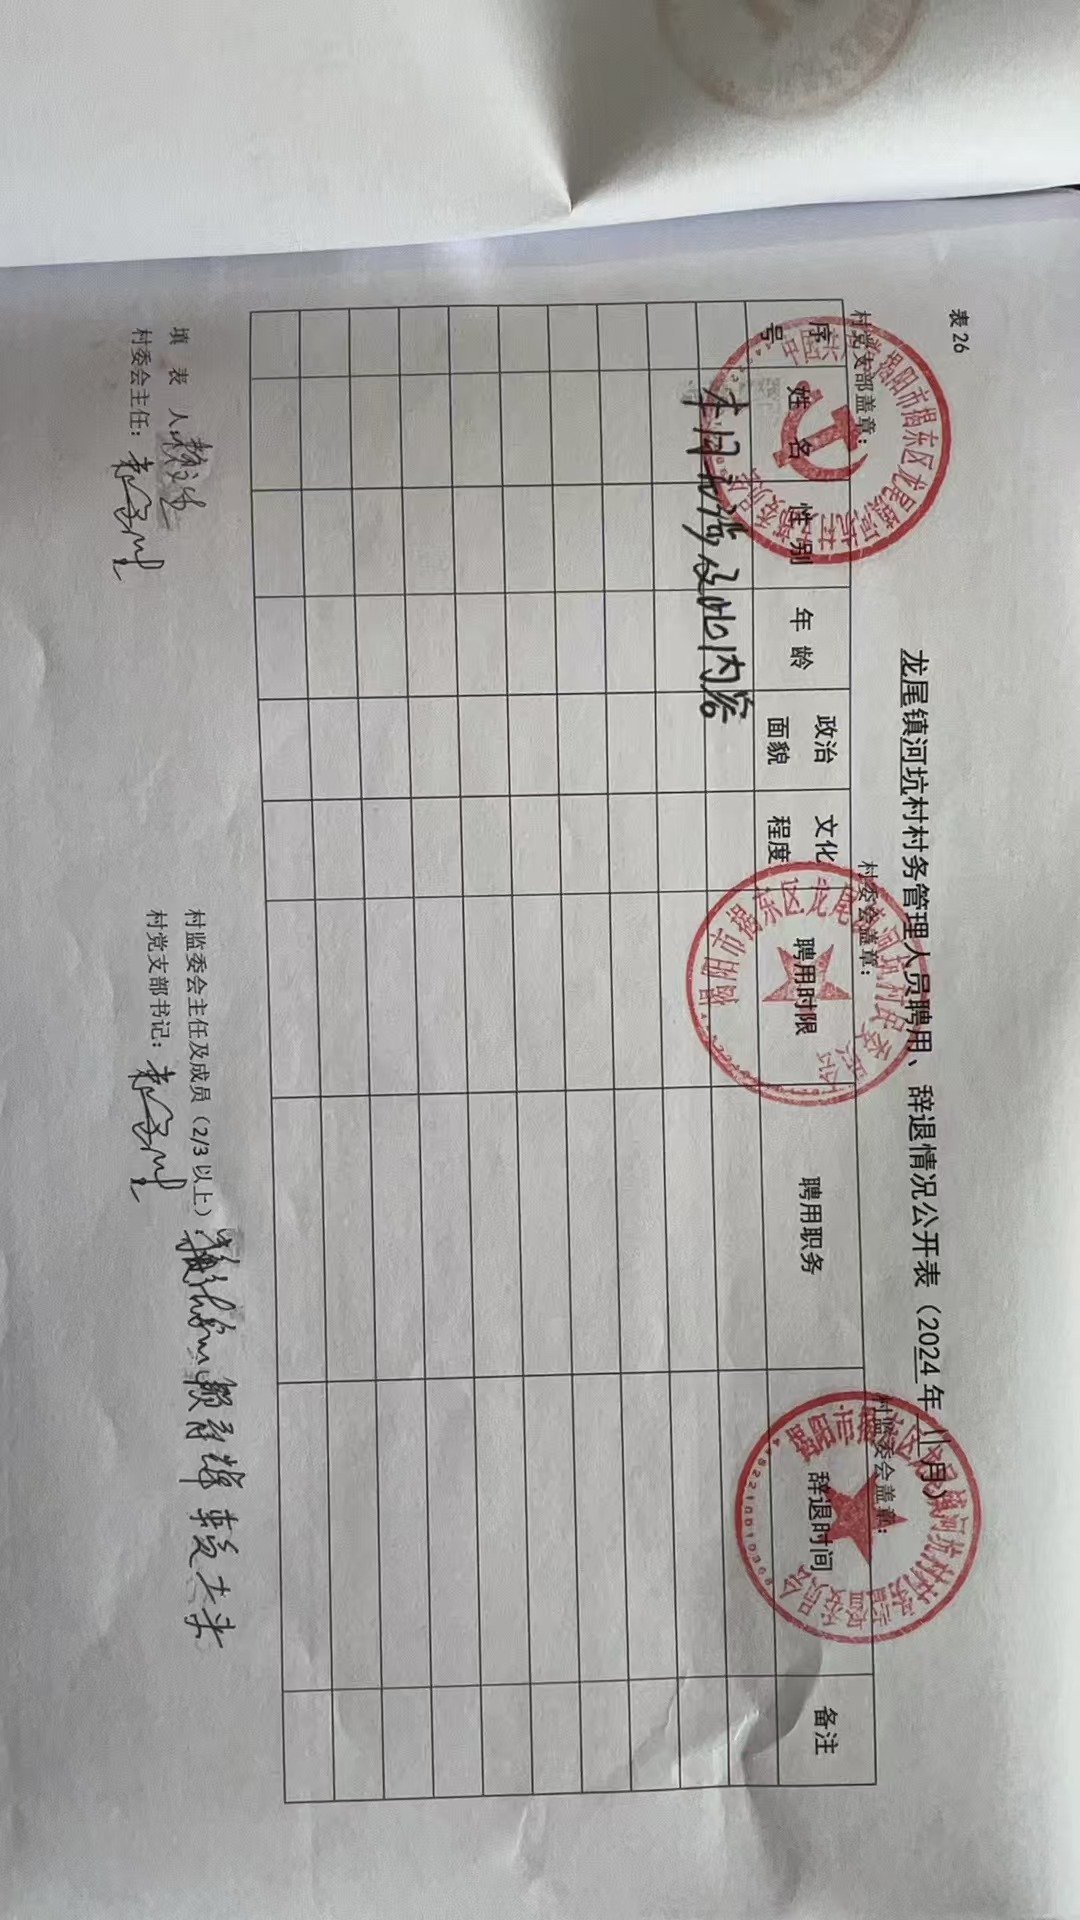 表 26
龙尾镇河坑村村务管理人员聘用、辞退情况公开表（2024 年 11 月）
村党支部盖章： 村委会盖章： 村监委会盖章：
序号 姓 名 性 别 年 龄 政治面貌 文化程度 聘用时限 聘用职务 辞退时间 备注
本月无涉及此内容
填 表 人： 村监委会主任及成员（2/3 以上）
村委会主任： 村党支部书记：
揭阳市揭东区龙尾镇河坑村
揭阳市揭东区龙尾镇河坑村民委员会
揭阳市揭东区龙尾镇河坑村村务监督委员会